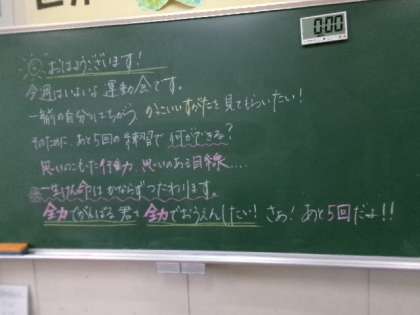 0:00
おはようございます！
今週はいよいよ運動会です。
一年前の自分とはちがう、かっこいいすがたを見てもらいたい！
そのために、あと5回の練習で何ができる？
思いのこもった行動、思いのある目線....
一生けん命はかならずつたわります。
全力でがんばる君を全力でおうえんしたい！さあ！あと5回だよ！！